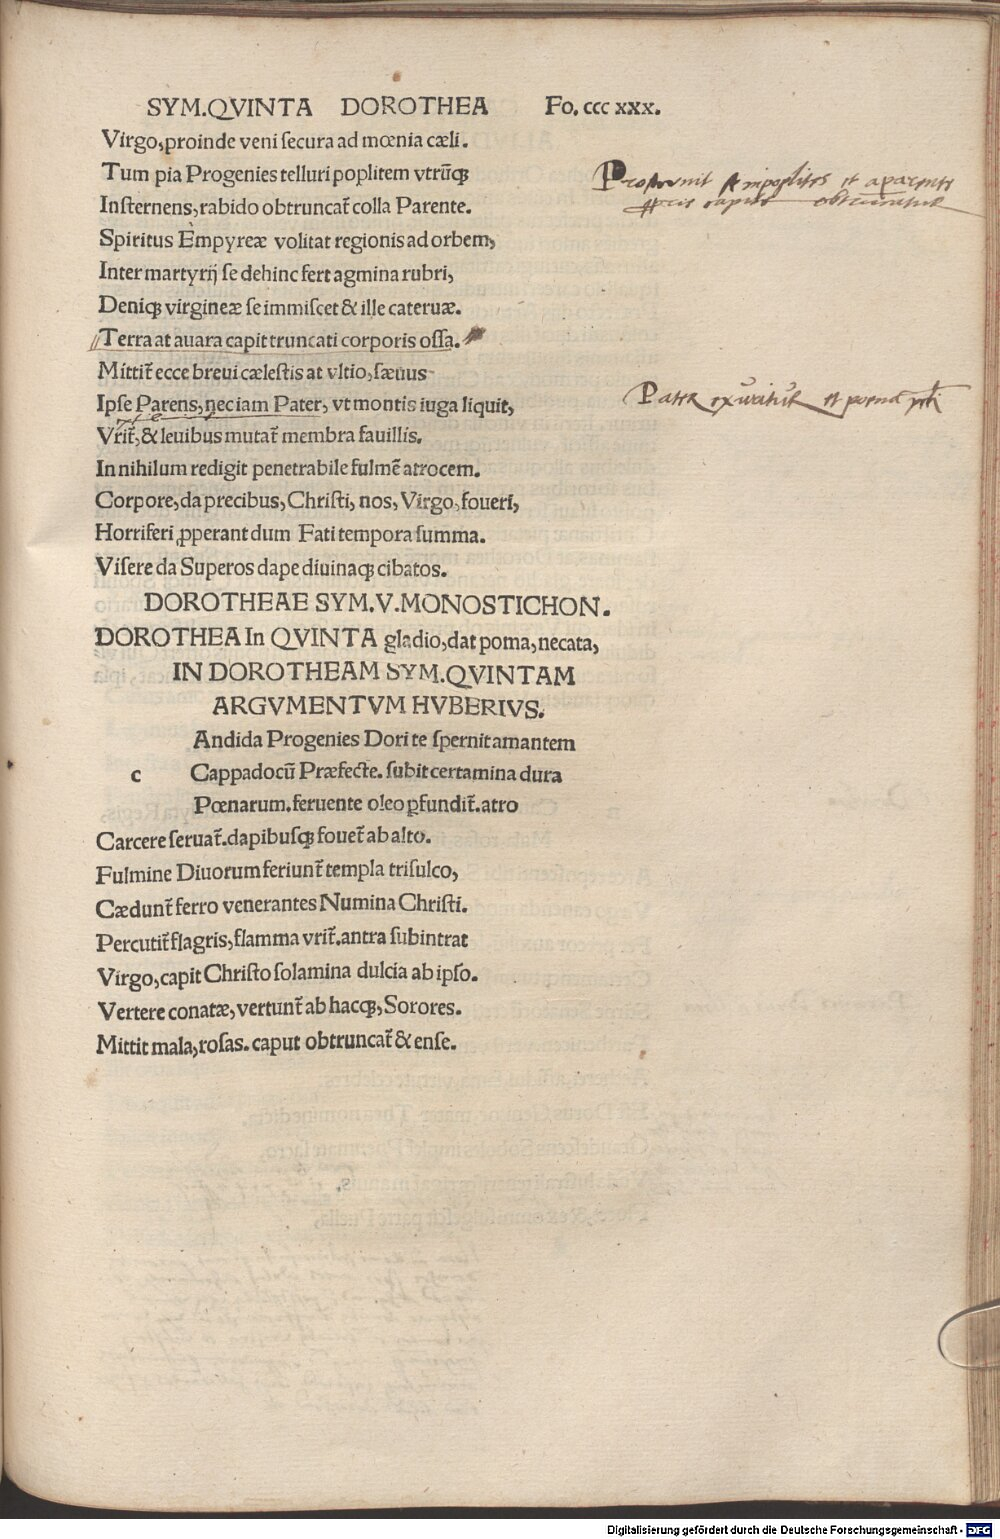 SYM.QVINTA DOROTHEA Fo. ccc xxx.
Virgo, proinde veni ſecura ad mœnia cæli.
Tum pia Progenies telluri poplitem vtrūq;
Inſternens, rabido obtruncat᷑ colla Parente.
Spiritus Empyreæ volitat regionis ad orbem,
Inter martyrij ſe dehinc fert agmina rubri,
Deniq; virgineæ ſe immiſcet & ille cateruæ.
Terra at auara capit truncati corporis oſſa.
Mittit᷑ ecce breui cæleſtis at vltio, ſæuus
Ipſe Parens, neciam Pater, vt montis iuga liquit,
Vrit᷑, & leuibus mutat᷑ membra fauillis.
In nihilum redigit penetrabile fulmē atrocem.
Corpore, da precibus, Chriſti, nos, Virgo, foueri,
Horriferi ꝓperant dum Fati tempora ſumma.
Viſere da Superos dape diuinaq; cibatos.
DOROTHEAE SYM.V.MONOSTICHON.
DOROTHEA In QVINTA gladio, dat poma, necata,
IN DOROTHEAM SYM.QVINTAM
ARGVMENTVM HVBERIVS.
Andida Progenies Dori te ſpernit amantem
c Cappadocū Præfecte. ſubit certamina dura
Pœnarum. feruente oleo ꝑfundit᷑. atro
Carcere ſeruat᷑. dapibuſq; fouet᷑ ab alto.
Fulmine Diuorum feriunt᷑ templa triſulco,
Cædunt᷑ ferro venerantes Numina Chriſti.
Percutit᷑ flagris, flamma vrit᷑. antra ſubintrat
Virgo, capit Chriſto ſolamina dulcia ab ipſo.
Vertere conatæ, vertunt᷑ ab hacq;, Sorores.
Mittit mala, roſas. caput obtruncat᷑ & enſe.
et a parente
capite obtruncatur
Pater exuritur et poena
Digitalisierung gefördert durch die Deutsche Forschungsgemeinschaft - DFG